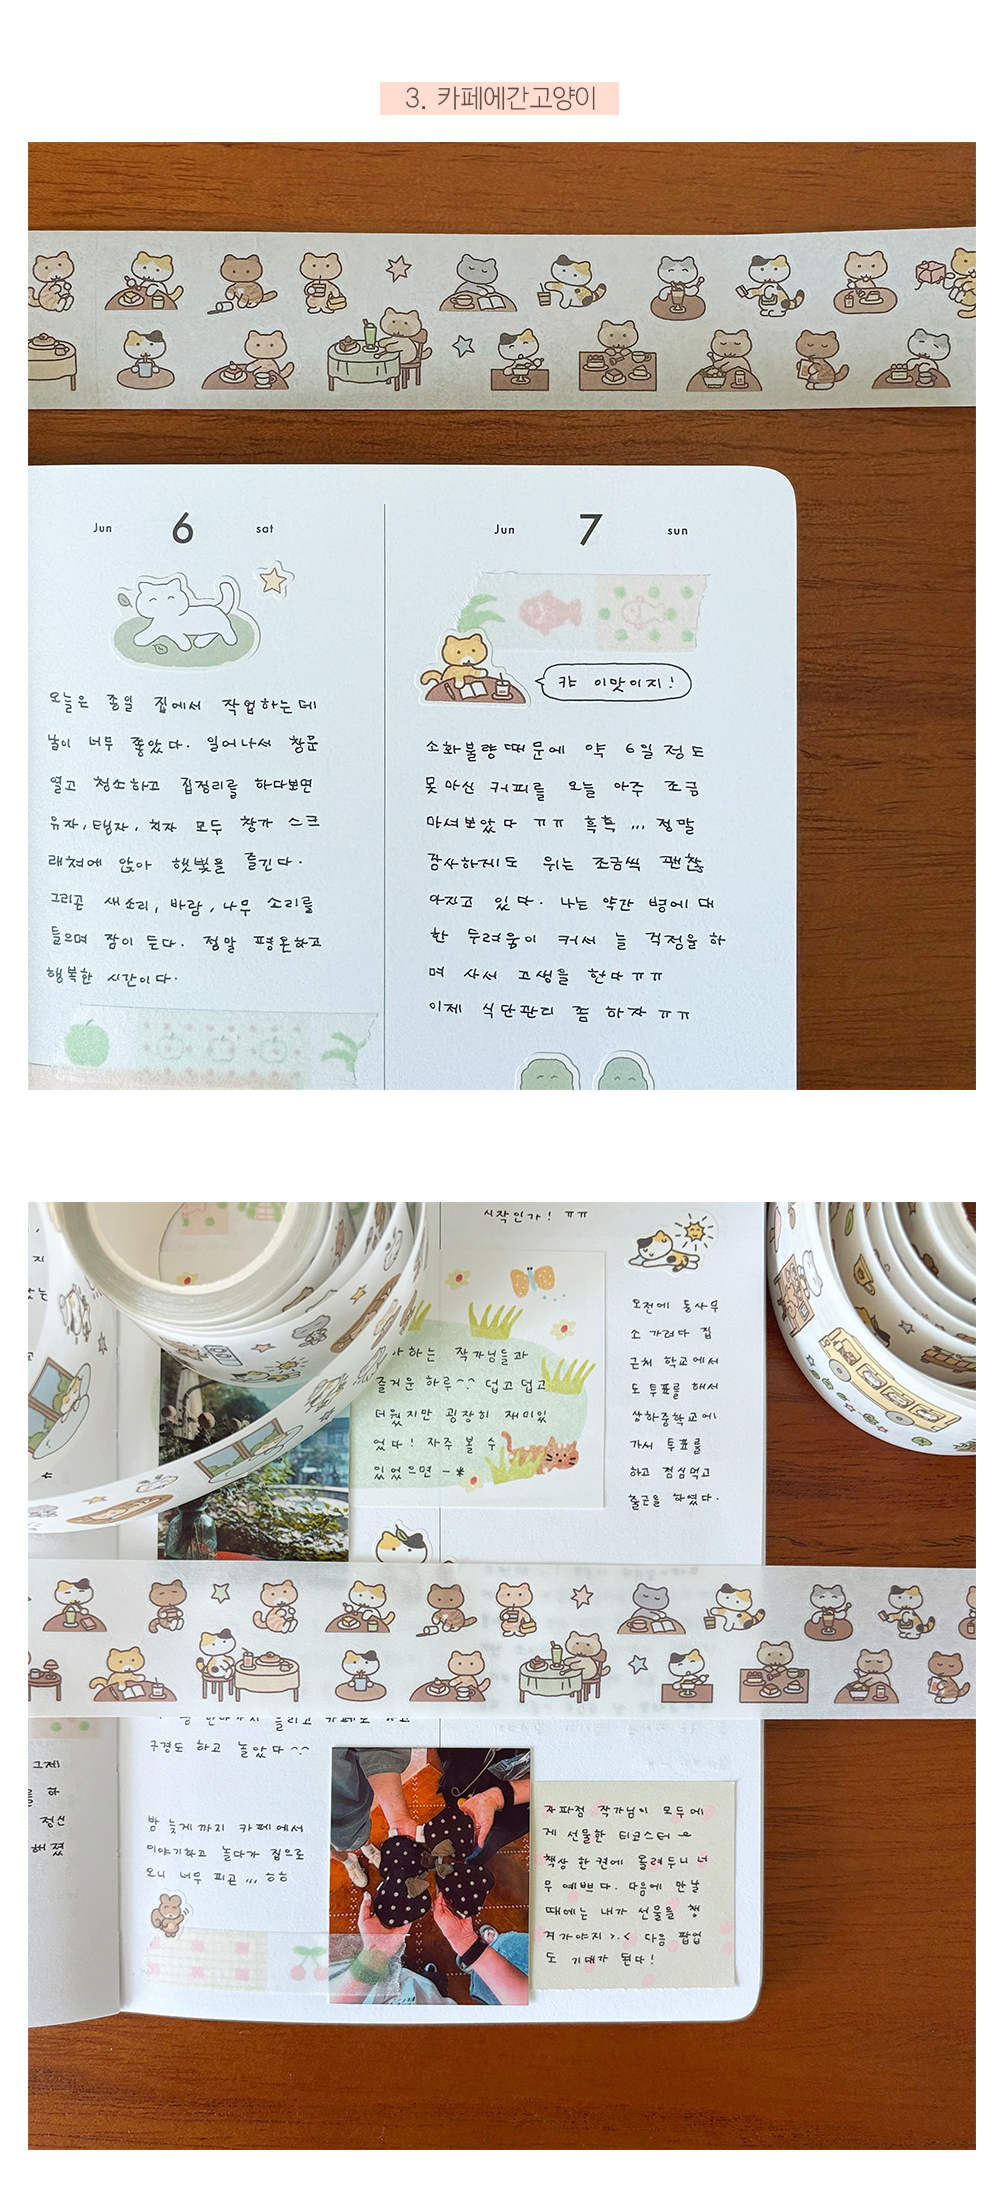 3. 카페에간고양이
Jun 6 sat
오늘은 종일 집에서 작업하는데
날이 너무 좋았다. 일어나서 창문
열고 청소하고 집정리를 하다보면
유자, 탱자, 치자 모두 창가 스크
래쳐에 앉아 햇빛을 즐긴다.
그리곤 새소리, 바람, 나무 소리를
들으며 잠이 든다. 정말 평온하고
행복한 시간이다.
Jun 7 sun
캬 이맛이지!
소화불량때문에 약 6일 정도
못 마신 커피를 오늘 아주 조금
마셔보았다 ㅠㅠ 흑흑 ... 정말
감사하게도 위는 조금씩 괜찮
아지고 있다. 나는 약간 병에 대
한 두려움이 커서 늘 걱정을 하
며 사서 고생을 한다 ㅠㅠ
이제 식단관리 좀 하자 ㅠㅠ
시작인가! ㅠㅠ
아하는 작가님들과
즐거운 하루^^ 덥고 덥고
더웠지만 굉장히 재미있
었다! 자주 볼 수
있었으면 -*
오전에 동사무
소 가려다 집
근처 학교에서
도 투표를 해서
상하중학교에
가서 투표를
하고 점심먹고
출근을 하였다.
들리고 카페로 가고
구경도 하고 놀았다 ^^
밤 늦게까지 카페에서
이야기하고 놀다가 집으로
오니 너무 피곤 ... ㅎㅎ
그제
하
정신
해졌
자파정 작가님이 모두에
게 선물한 티코스터
책상 한 켠에 올려두니 너
무 예쁘다. 다음에 만날
때에는 내가 선물을 챙
겨가야지 >.< 다음 팝업
도 기대가 된다!